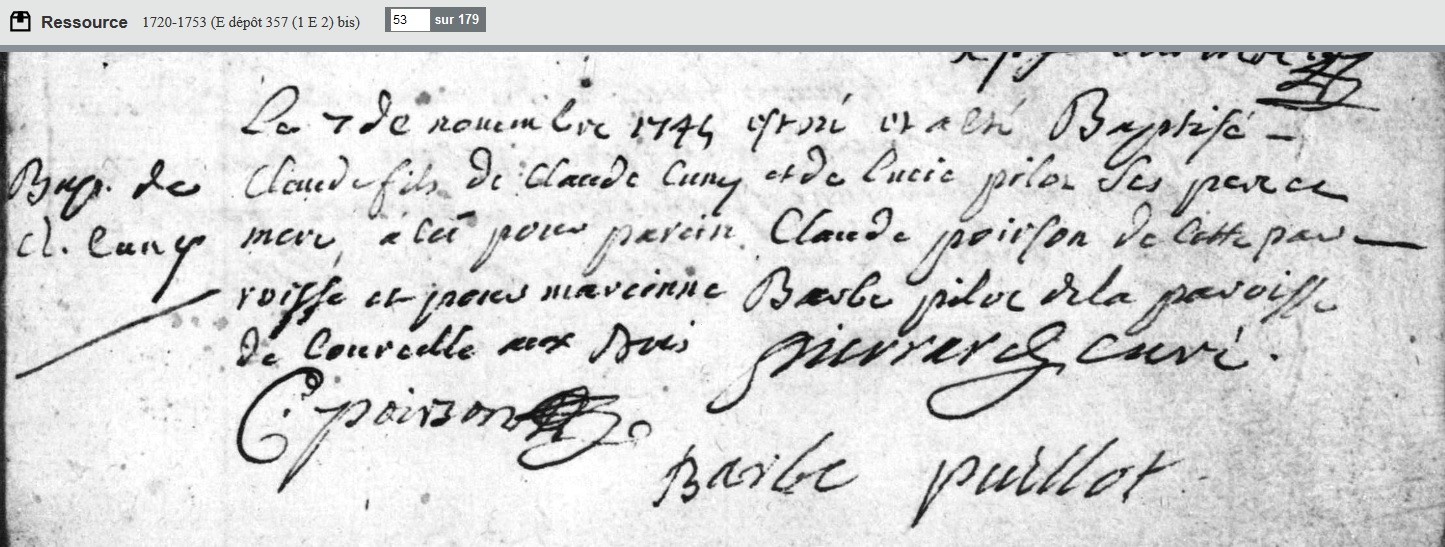 Ressource 1720-1753 (E dépôt 357 (1 E 2) bis) 53 sur 179
Le 7 de nouembre 1745 est né et a été Baptisé
Bap. de
Cl. Cuny
Claude fils de Claude Cuny et de Lucie pilot Ses pere et
mere, a eü pour parein Claude poirson de cette pa
roisse et pour mareinne Barbe pilot de la paroisse
de Courcelle aux Bois pierrard Curé.
C poirson
Barbe puillot